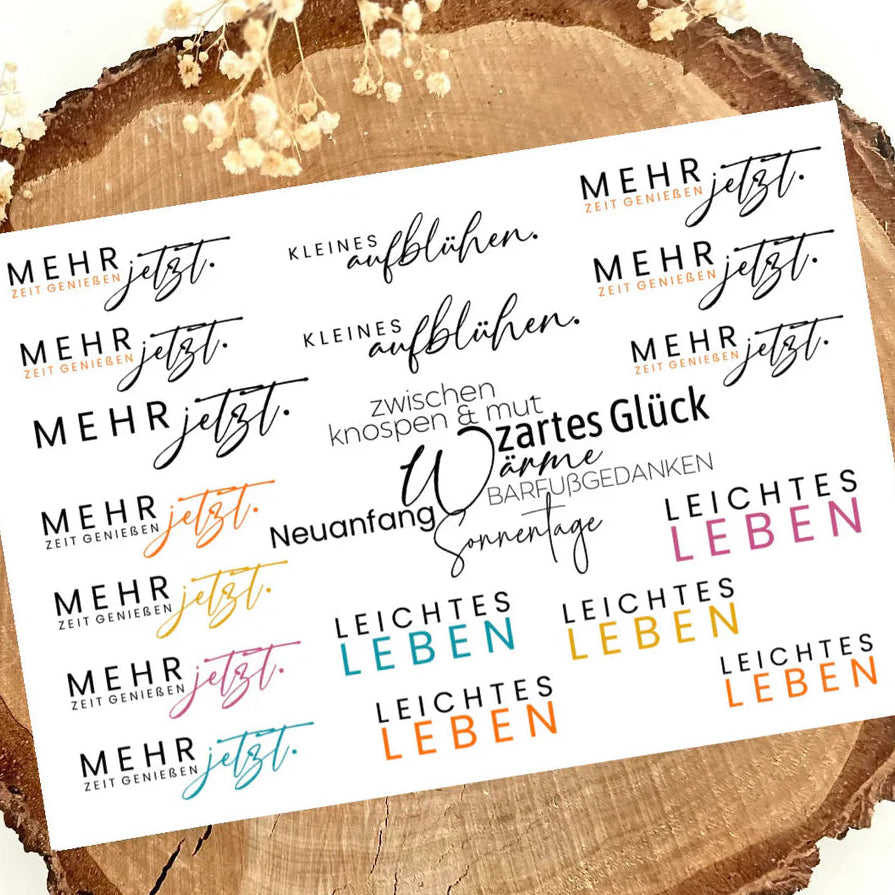 MEHR jetzt.
ZEIT GENIEßEN
MEHR jetzt.
ZEIT GENIEßEN
MEHR jetzt.
MEHR jetzt.
ZEIT GENIEßEN
MEHR jetzt.
ZEIT GENIEßEN
MEHR jetzt.
ZEIT GENIEßEN
MEHR jetzt.
ZEIT GENIEßEN
KLEINES aufblühen.
KLEINES aufblühen.
zwischen
knospen & mut
zartes Glück
Wärme
BARFUßGEDANKEN
Neuanfang
Sonnentage
MEHR jetzt.
ZEIT GENIEßEN
MEHR jetzt.
ZEIT GENIEßEN
MEHR jetzt.
ZEIT GENIEßEN
LEICHTES
LEBEN
LEICHTES
LEBEN
LEICHTES
LEBEN
LEICHTES
LEBEN
LEICHTES
LEBEN